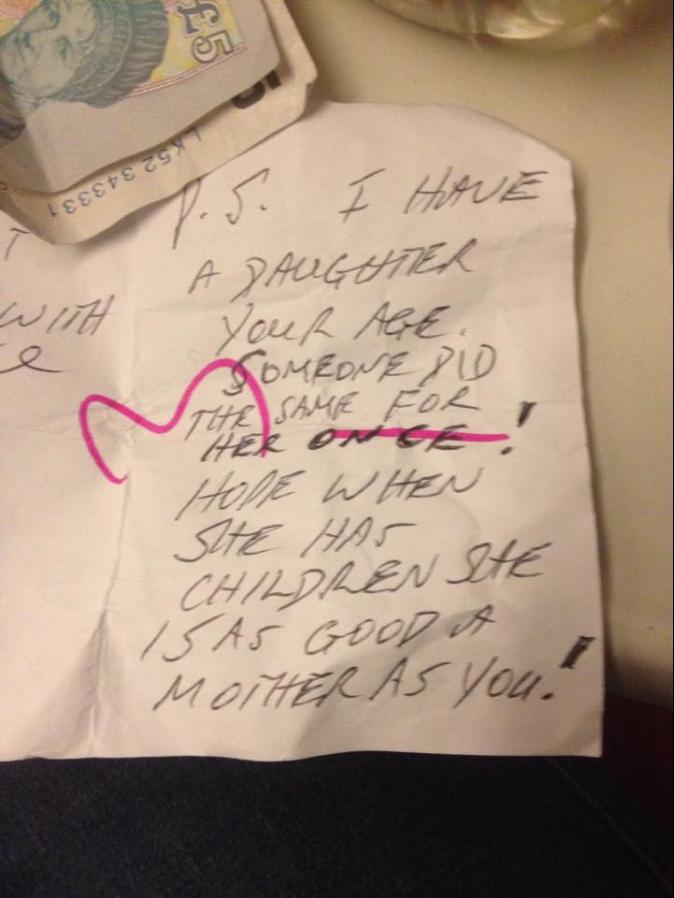 £5
5
LK52 343331
T
WITH
P.S. I HAVE
A DAUGHTER
YOUR AGE.
SOMEONE DID
THE SAME FOR
HER ONCE!
HOPE WHEN
SHE HAS
CHILDREN SHE
IS AS GOOD A
MOTHER AS YOU!